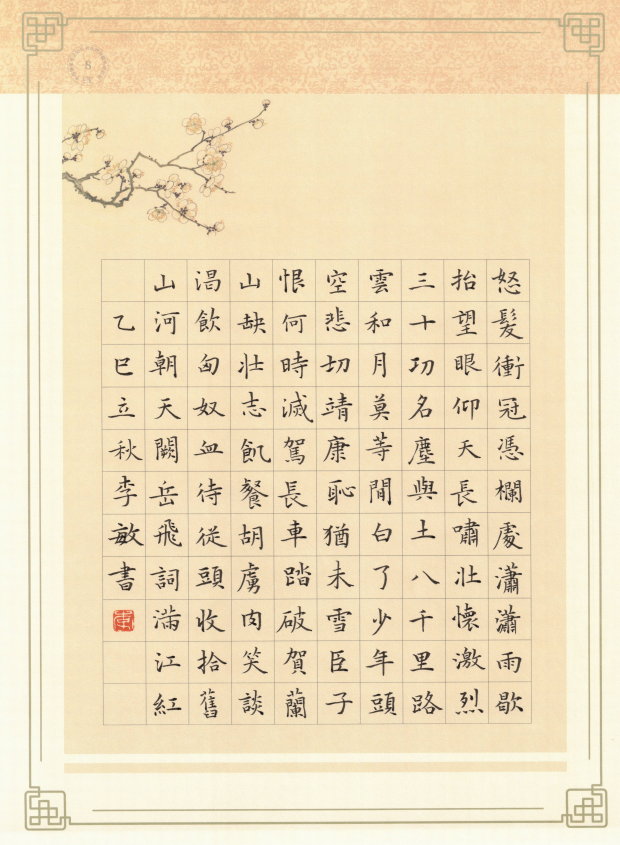 怒髮衝冠憑欄處瀟瀟雨歇
抬望眼仰天長嘯壯懷激烈
三十功名塵與土八千里路
雲和月莫等閒白了少年頭
空悲切靖康恥猶未雪臣子
恨何時滅駕長車踏破賀蘭
山缺壯志飢餐胡虜肉笑談
渴飲匈奴血待從頭收拾舊
山河朝天闕岳飛詞滿江紅
乙巳立秋李敏書